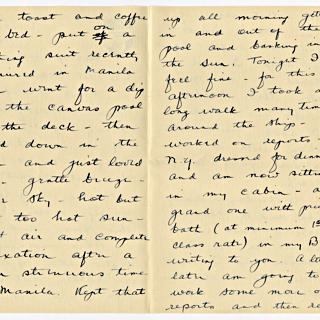 toast and coffee
bed - put on a
ting suit recently
ured in Manila
- went for a dip
the canvas pool
the deck - then
d down in the
- and just loved
- gentle breeze -
r sky - hot but
too hot sun -
t air and complete
axation after a
n strenuous time
Manila. Kept that
up all morning gett
in and out of the
pool and basking in
the sun. Tonight I
feel fine - for this
afternoon I took a
long walk many time
around the ship -
worked on reports -
N.Y. dressed for dinn
and am now sittin
in my cabin - a
grand one with priv
bath (at minimum 1st
class rate) in my B
writing to you. A lo
later am going to
work some more o
reports and then re